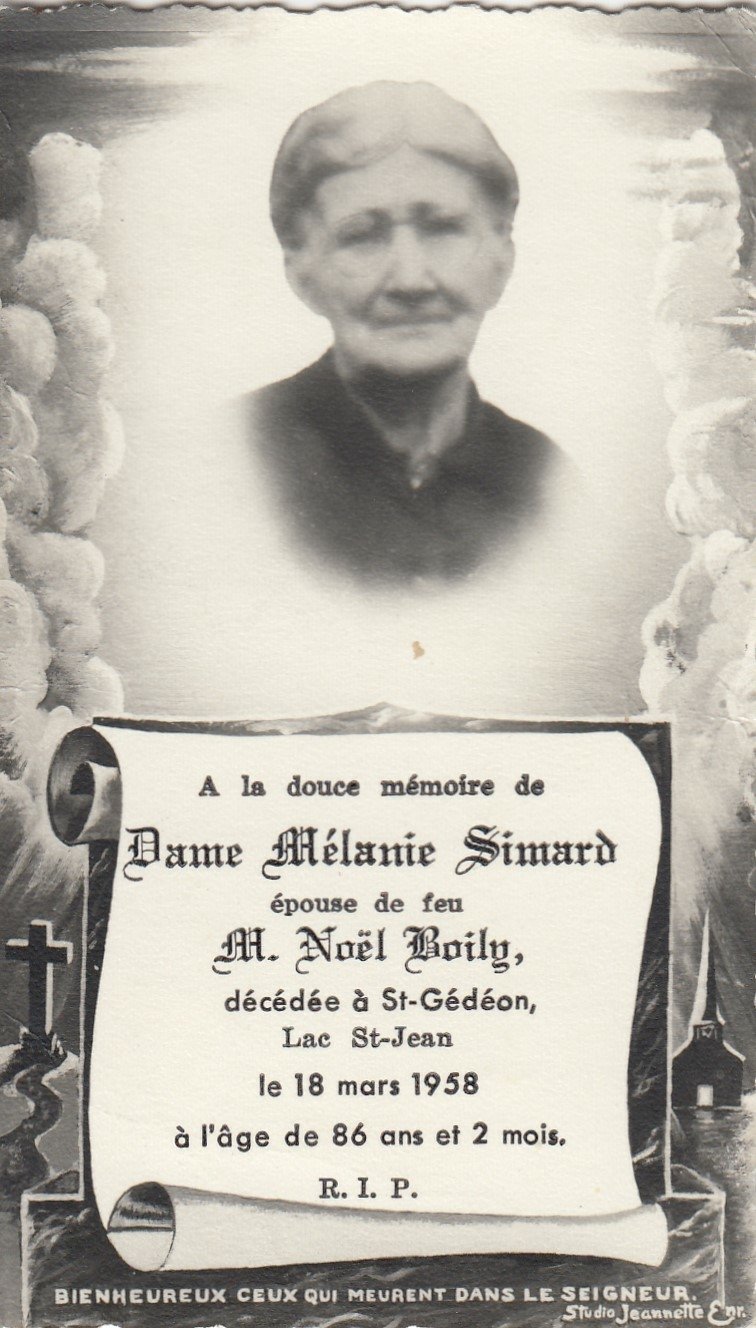 A la douce mémoire de
Dame Mélanie Simard
épouse de feu
M. Noël Boily,
décédée à St-Gédéon,
Lac St-Jean
le 18 mars 1958
à l'âge de 86 ans et 2 mois.
R. I. P.
BIENHEUREUX CEUX QUI MEURENT DANS LE SEIGNEUR.
Studio Jeannette Enr.